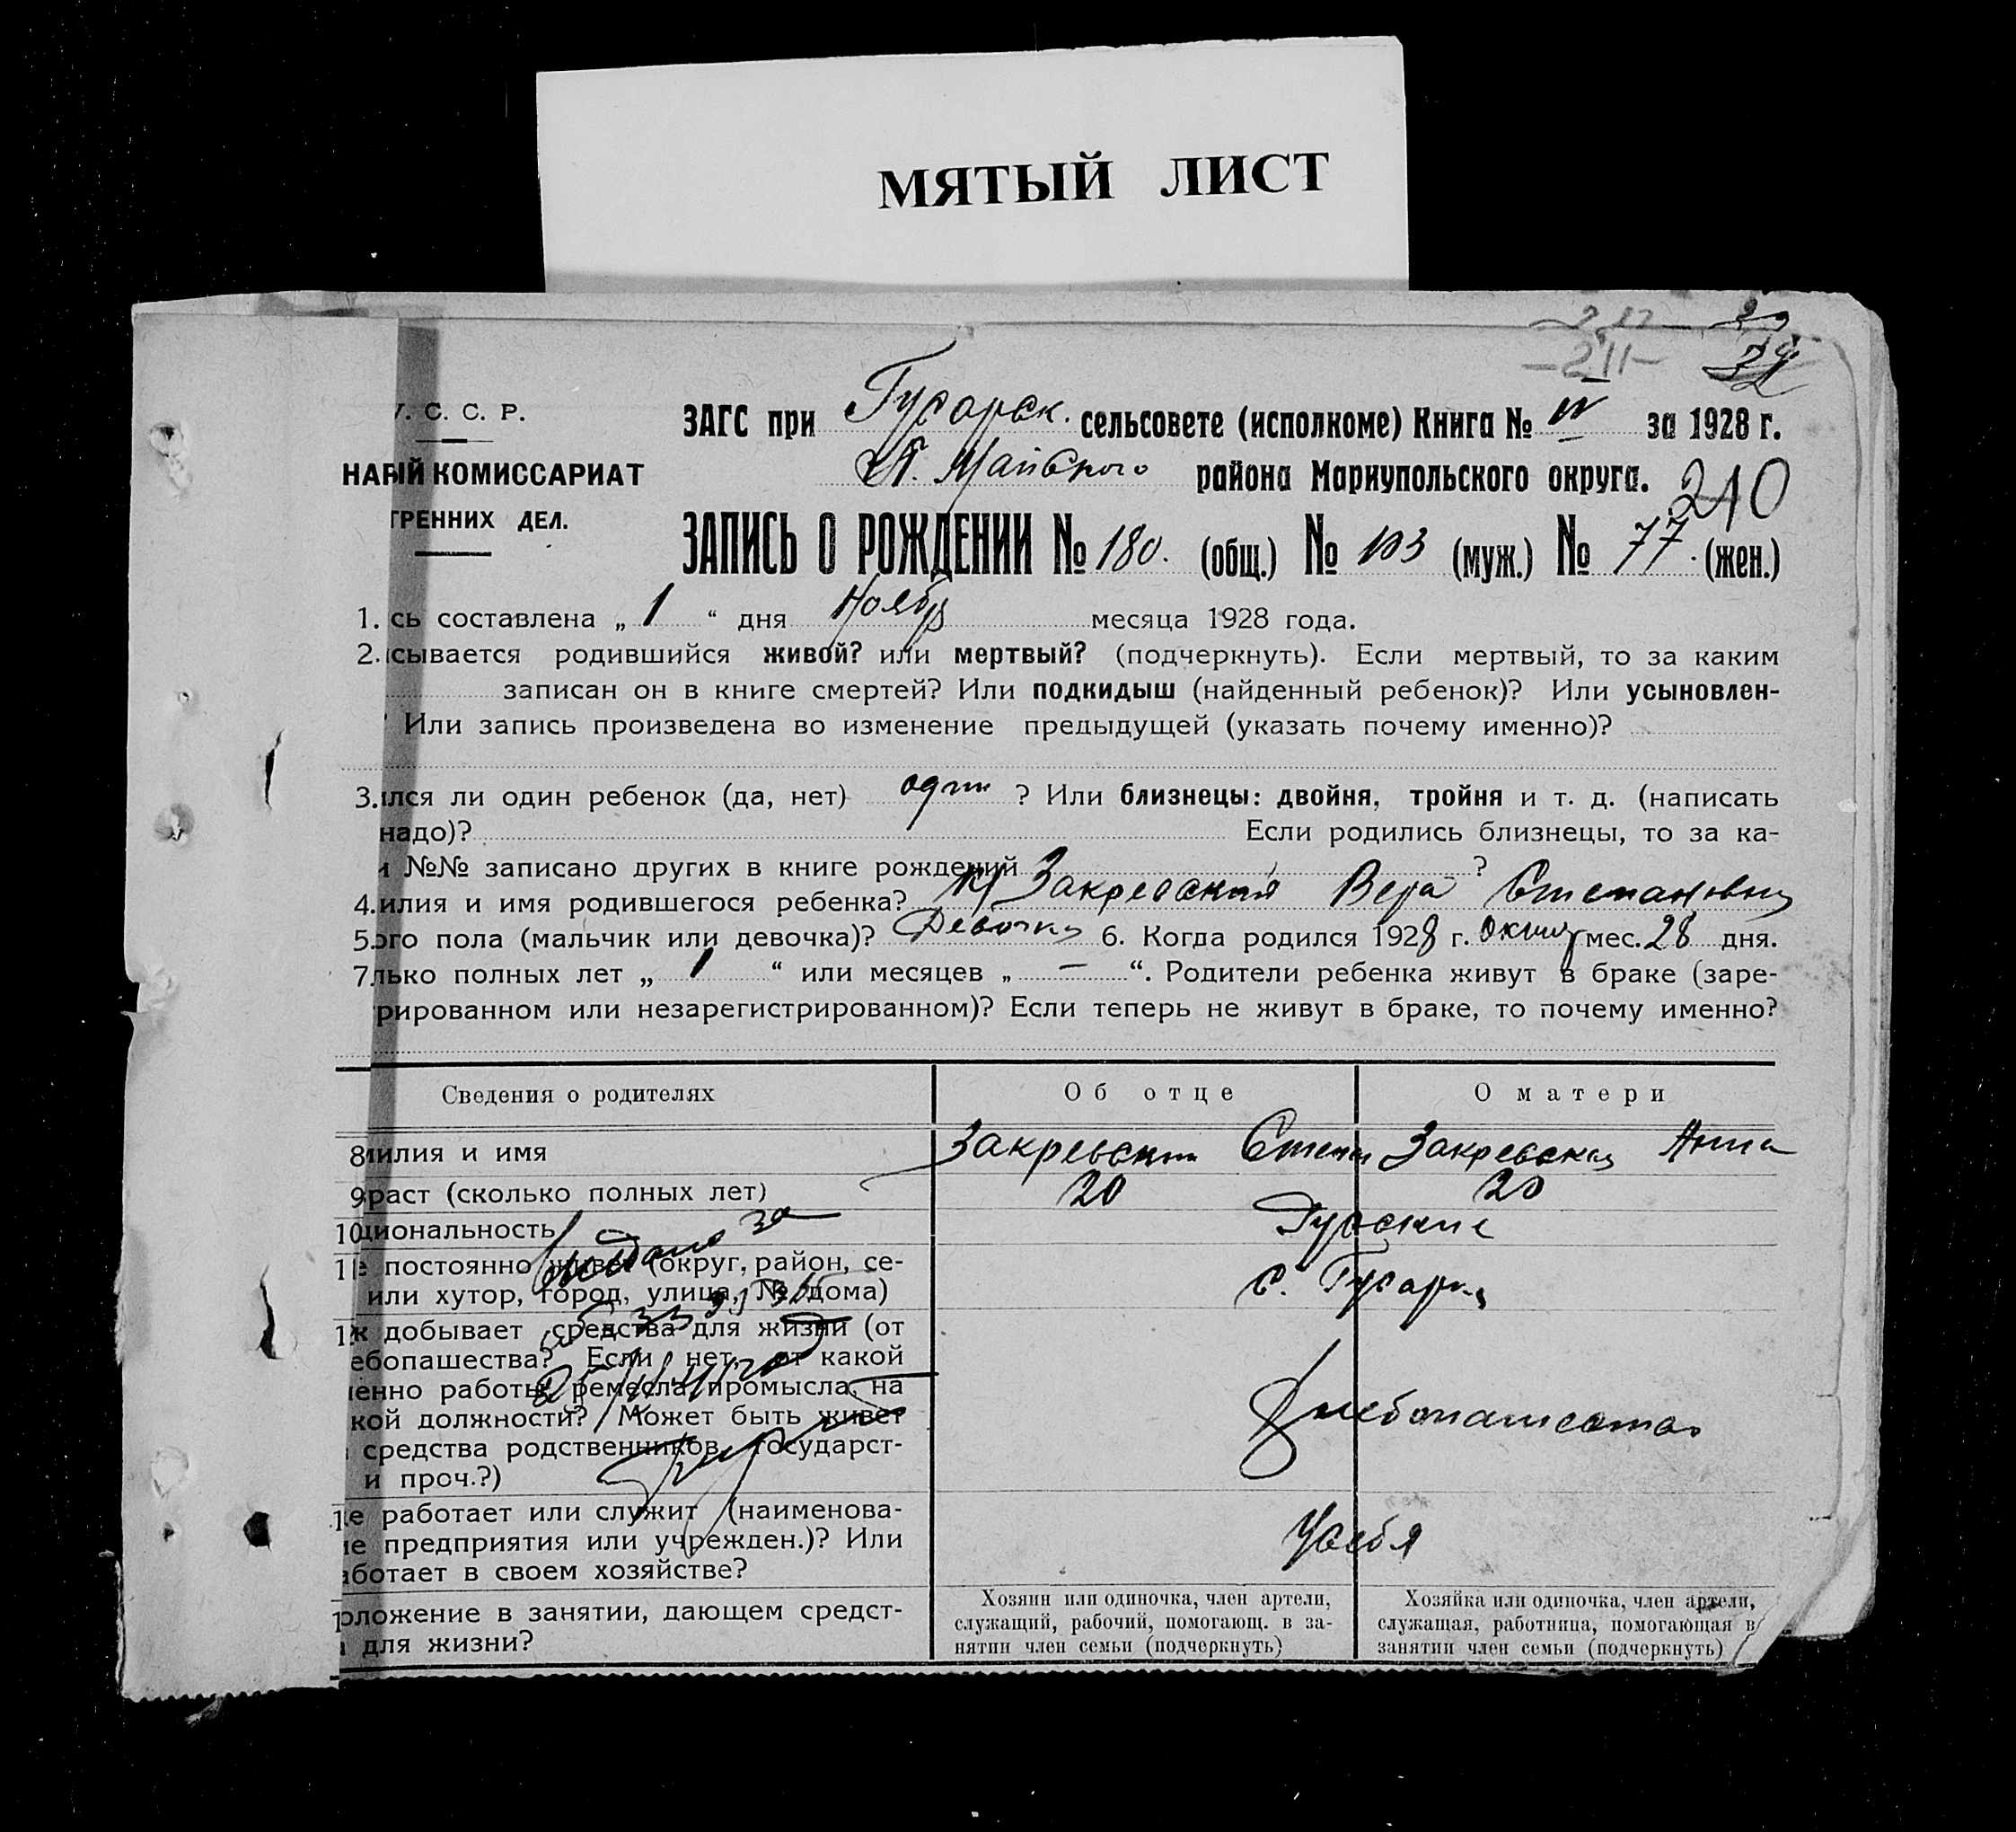 МЯТЫЙ ЛИСТ
211
У. С. С. Р.
ЗАГС при Гусарск. сельсовете (исполкоме) Книга № IV за 1928 г.
НАРЫЙ КОМИССАРИАТ
Майского района Мариупольского округа.
210
ТРЕННИХ ДЕЛ.
ЗАПИСЬ О РОЖДЕНИИ № 180. (общ.) № 103 (муж.) № 77. (жен.)
1. сь составлена „ 1 “ дня Ноября месяца 1928 года.
2. сывается родившийся живой? или мертвый? (подчеркнуть). Если мертвый, то за каким
записан он в книге смертей? Или подкидыш (найденный ребенок)? Или усыновлен-
Или запись произведена во изменение предыдущей (указать почему именно)?
3. ился ли один ребенок (да, нет) один ? Или близнецы: двойня, тройня и т. д. (написать
надо)? Если родились близнецы, то за ка-
и №№ записано других в книге рождений ?
4. илия и имя родившегося ребенка? Закревская Вера Степановна
5. ого пола (мальчик или девочка)? Девочка 6. Когда родился 1928 г. октяб мес. 28 дня.
7 лько полных лет „ 1 “ или месяцев „ — “. Родители ребенка живут в браке (заре-
рированном или незарегистрированном)? Если теперь не живут в браке, то почему именно?
Сведения о родителях Об отце О матери
8 илия и имя Закревский Степан Закревская Анна
9 раст (сколько полных лет) 20 20
10 циональность Русские
11 е постоянно живет (округ, район, се-
или хутор, город, улица, № дома) с. Гусарка
1 к добывает средства для жизни (от
ебопашества? Если нет, от какой
енно работы, ремесла, промысла, на
кой должности? Может быть живет
средства родственников, государст-
и проч.?) Хлебопашество
1 е работает или служит (наименова-
ие предприятия или учрежден.)? Или
аботает в своем хозяйстве? У себя
1 оложение в занятии, дающем средст-
а для жизни?
Хозяин или одиночка, член артели,
служащий, рабочий, помогающ. в за-
нятии член семьи (подчеркнуть)
Хозяйка или одиночка, член артели,
служащая, работница, помогающая в
занятии член семьи (подчеркнуть)